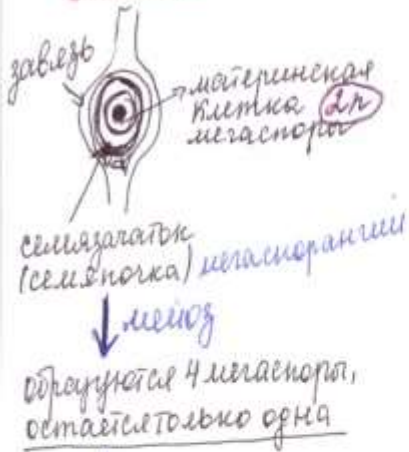 завязь
материнская
клетка 2n
мегаспоры
семязачаток
(семяпочка) мегаспорангий
мейоз
образуются 4 мегаспоры,
остаётся только одна